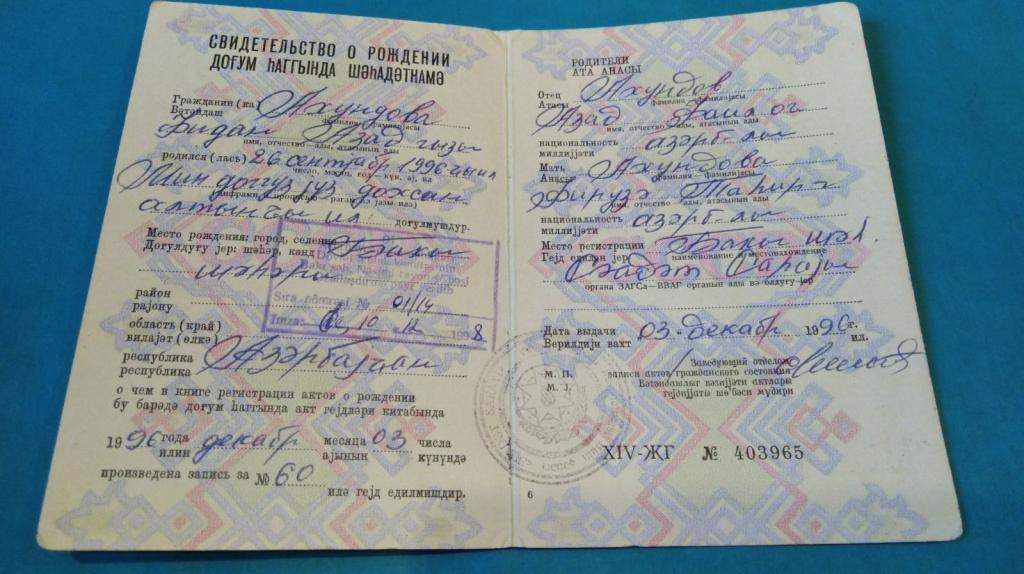 СВИДЕТЕЛЬСТВО О РОЖДЕНИИ
ДОҒУМ ҺАГГЫНДА ШӘҺАДӘТНАМӘ
Гражданин (ка) Ахундова
Вәтәндаш
фамилия—фамилијасы
Фидан Азад гызы
имя, отчество—ады, атасынын ады
родился (лась) 26 сентјабр 1996-чы ил
число, месяц, год — күн, ај, ил
Мин доггуз јүз дохсан
(цифрами и прописью—рәгәм вә јазы илә)
алтынчы ил доғулмушдур.
Место рождения: город, селение Бакы
Доғулдуғу јер: шәһәр, кәнд
шәһәри
Sıra nömrəsi № 01/14
район
рајону
İmza: 10 12 1998
область (край)
вилајәт (өлкә)
республика Азәрбајҹан
республика
о чем в книге регистрации актов о рождении
бу барәдә доғум һаггында акт гејдләри китабында
1996 года декабр месяца 03 числа
илин ајынын күнүндә
произведена запись за № 60
илә гејд едилмишдир.
РОДИТЕЛИ
АТА АНАСЫ
Отец Ахундов
Атасы
фамилия—фамилијасы
Азад оғ
имя, отчество—ады, атасынын ады
национальность азәрб-лы
миллијјәти
Мать Ахундова
Анасы
фамилия—фамилијасы
Фирузә Таһир г
имя, отчество—ады, атасынын ады
национальность азәрб-лы
миллијјәти
Место регистрации Бакы шәһ.
Гејд едилән јер
наименование и местонахождение
Сәадәт Сарајы
органа ЗАГСа—ВВАГ органын ады вә олдуғу јер
Дата выдачи 03 декабр 1996 г.
Верилдији вахт ил.
Заведующий отделом
записи актов гражданского состояния
Вәтәндашлыг вәзијјәти актлары
гејдијјаты шө'бәси мүдири
М. П.
М. Ј.
XIV-ЖГ № 403965
6